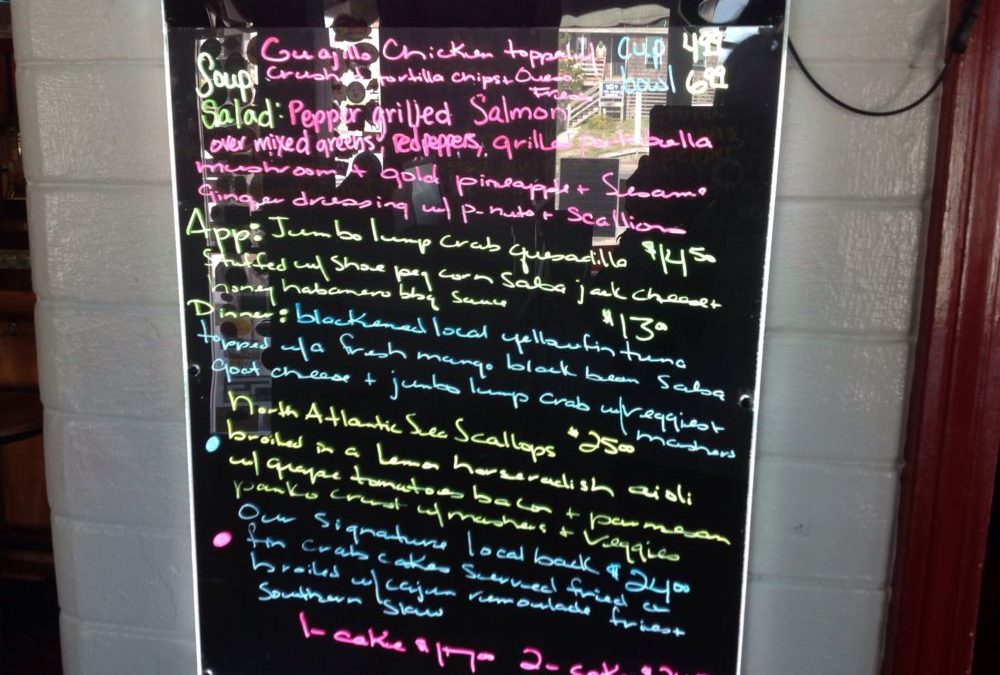 Guajillo Chicken topped w/ cup 4.99
Soup: Crushed tortilla chips + Queso bowl 6.99
Fresco
Salad: Pepper grilled Salmon
over mixed greens, red peppers, grilled portabella
mushroom + gold pineapple + Sesame
Ginger dressing w/ p-nuts + Scallions
App: Jumbo lump crab quesadilla $14.50
Stuffed w/ Shoe peg corn Salsa jack cheese +
honey habanero bbq sauce $13.00
Dinner: blackened local yellowfin tuna
topped w/ a fresh mango black bean Salsa
goat cheese + jumbo lump crab w/ veggies +
mashers
North Atlantic Sea Scallops $25.00
broiled in a Lemon horseradish aioli
w/ grape tomatoes bacon + parmesan
panko crust w/ mashers + Veggies
Our Signature local back $24.00
fin crab cakes Served fried or
broiled w/ cajun remoulade fries +
Southern Slaw
1- cake $17.00 2- cake